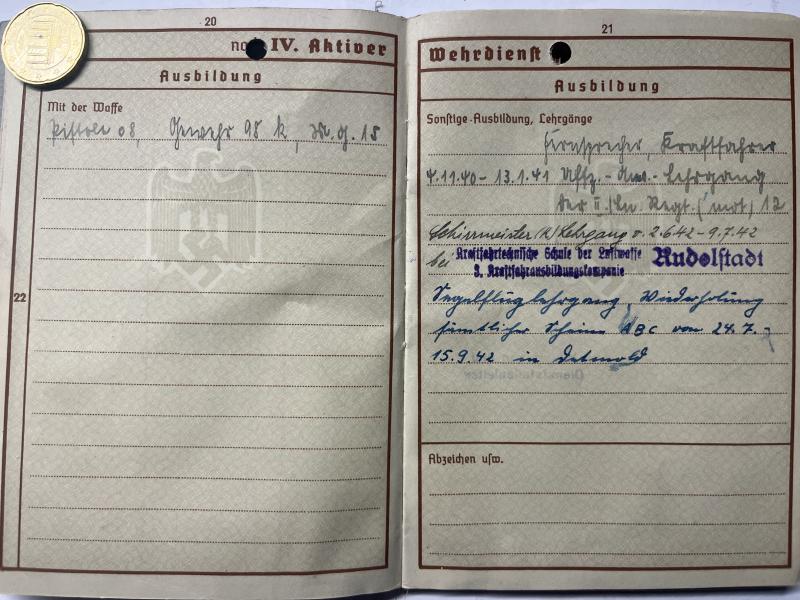 20
noch IV. Aktiver
Ausbildung
Mit der Waffe
Pistole 08, Gewehr 98 k, M.G. 15
22
21
Wehrdienst
Ausbildung
Sonstige Ausbildung, Lehrgänge
Fernsprecher, Kraftfahrer
4.11.40 - 13.1.41 Uffz.-Anw.-Lehrgang
der II./Ln. Regt. (mot) 12
Schirrmeister (K) Lehrgang v. 2.6.42 - 9.7.42
bei Kraftfahrtechnische Schule der Luftwaffe Rudolstadt
3. Kraftfahrausbildungskompanie
Segelfluglehrgang, Wiederholung
sämtlicher Scheine ABC vom 24.7. -
15.9.42 in Detmold
Abzeichen usw.